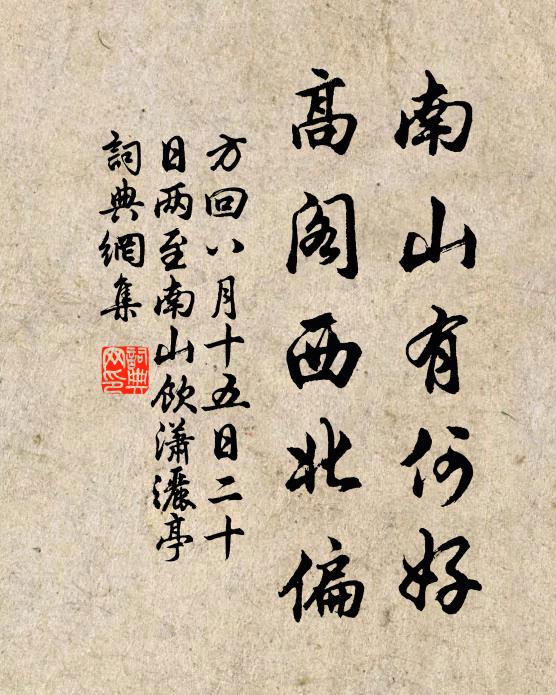 南山有何好
高阁西北偏
方回八月十五日二十
日两至南山饮潇灑亭
詞典網集
詞典
网印